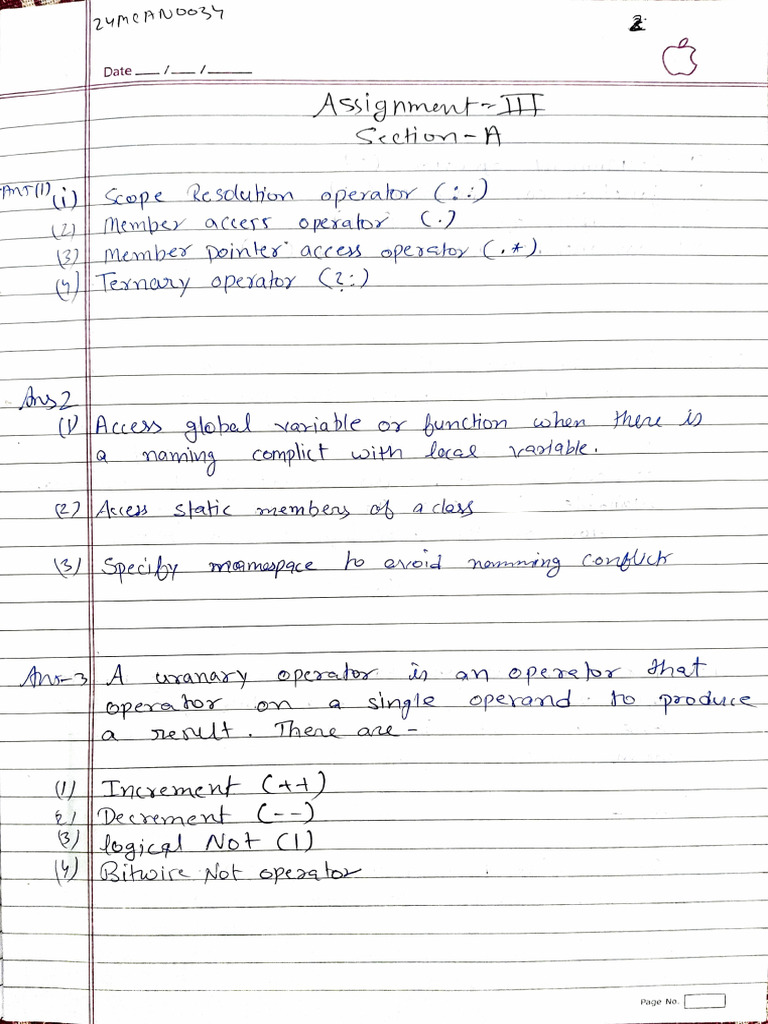 24MCAN0034
2
Date __/__/____
Assignment-III
Section-A
Ans(1) (i) Scope Resolution operator (::)
(2) Member access operator (.)
(3) Member pointer access operator (.*).
(4) Ternary operator (?:)
Ans2
(1) Access global variable or function when there is
a naming complict with local variable.
(2) Access static members of a class
(3) Specify namespace to avoid namming conflict
Ans-3 A uranary operator is an operator that
operator on a single operand to produce
a result. There are -
(1) Increment (++)
2) Decrement (--)
(3) logical Not (!)
(4) Bitwise Not operator
Page No.